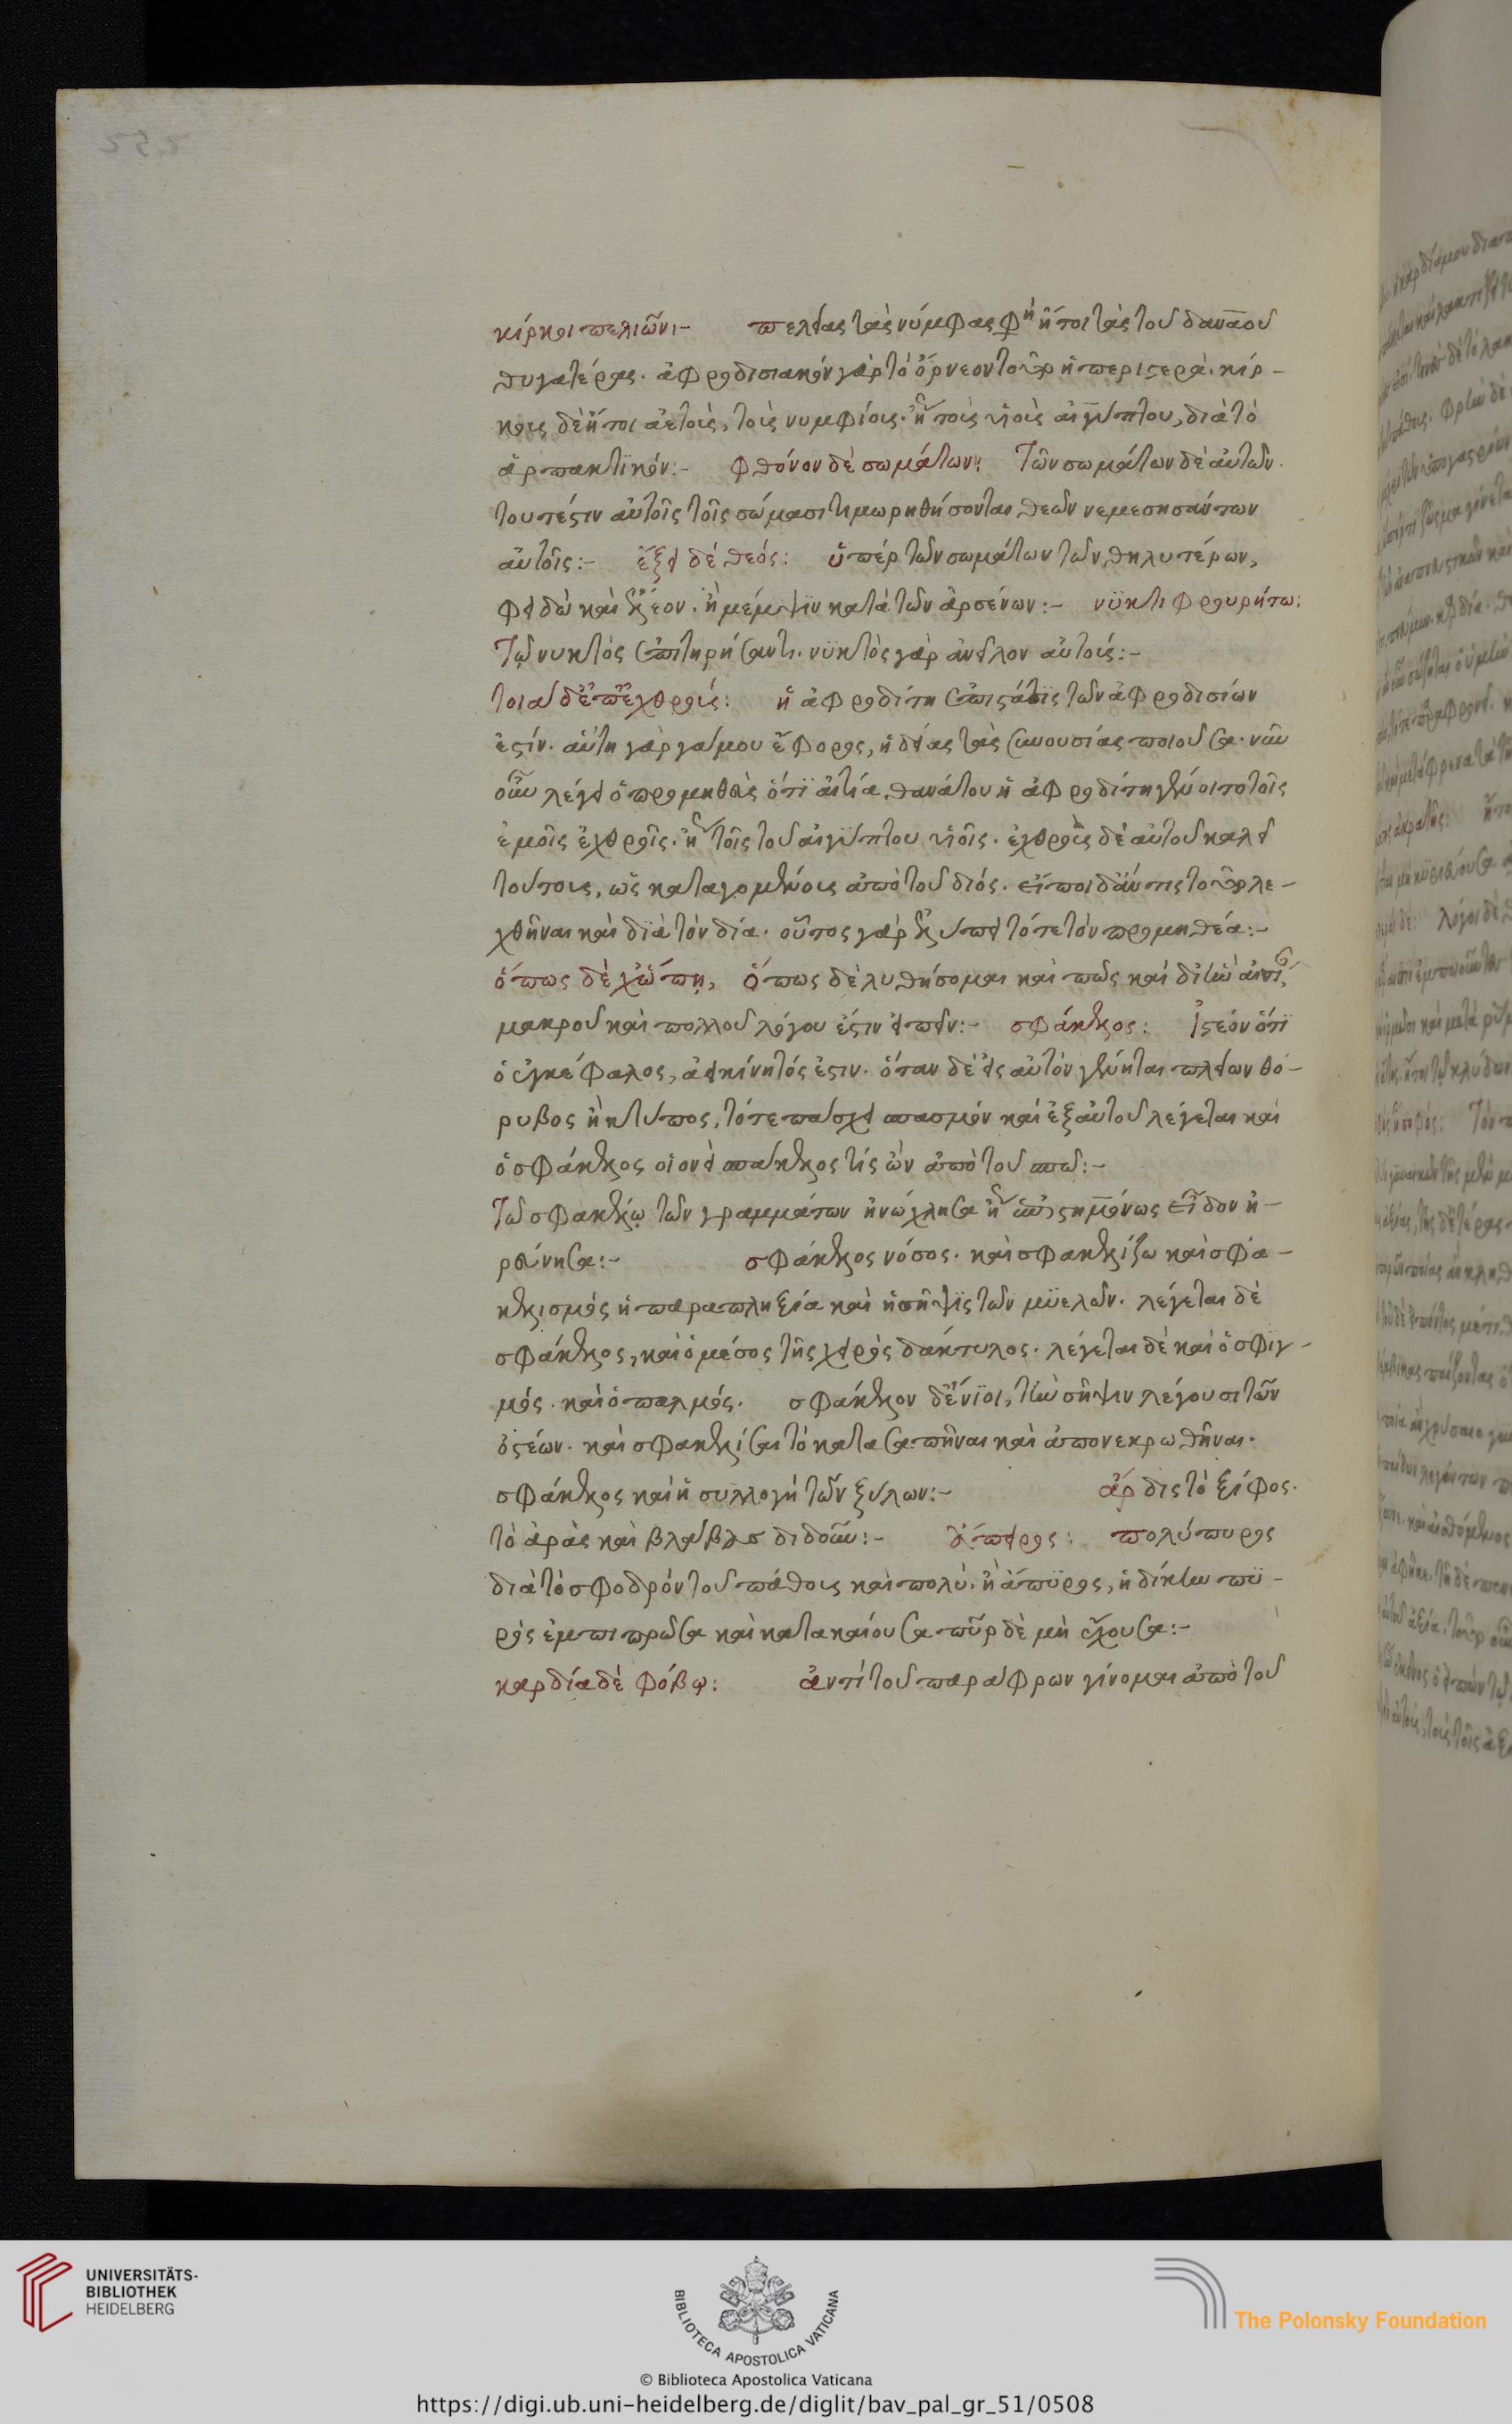 κίρκοι πελιῶν:- πελείας τὰς νύμφας φη ἤτοι τὰς τοῦ δαναοῦ
θυγατέρας. ἀφροδισιακὸν γὰρ τὸ ὄρνεον τοῦτο ἡ περιστερά. κίρ-
κοις δὲ ἤτοι ἀετοὶς, τοὶς νυμφίοις. ἤγουν τοὶς υἱοὶς αἰγύπτου, διὰ τὸ
ἁρπακτικόν:- φθόνον δὲ σωμάτων: Τῶν σωμάτων δὲ αὐτῶν.
τουτέστιν αὐτοῖς τοῖς σώμασι τιμωρηθήσονται, θεῶν νεμεσησάντων
αὐτοῖς:- ἕξει δὲ θεός: ὑπὲρ τῶν σωμάτων τῶν θηλυτέρων,
φειδὼ καὶ ἔλεον. ἢ μέμψιν κατὰ τῶν ἀρσένων:- νϋκτι φρουρήτω:
Τῷ νυκτὸς ἐπιτηρήσαντι. νϋκτὸς γὰρ ἀνεῖλον αὐτούς:-
τοιάδ' ἐπ' ἐχθρούς: ἡ ἀφροδίτη ἐπιστάτις τῶν ἀφροδισίων
ἐστίν. αὕτη γὰρ γάμου ἔφορος, ἡδείας τὰς συνουσίας ποιοῦσα. νῦν
οὖν λέγει ὁ προμηθεὺς ὅτι αἰτία θανάτου ἡ ἀφροδίτη γένοιτο τοῖς
ἐμοῖς ἐχθροῖς. ἤγουν τοῖς τοῦ αἰγύπτου υἱοῖς. ἐχθροὺς δὲ αὐτοῦ καλεῖ
τούτους, ὡς καταγομένους ἀπὸ τοῦ διός. εἴποι δἄν τις τοῦτο λε-
χθῆναι καὶ διὰ τὸν δία. οὗτος γὰρ ἐλύπει τότε τὸν προμηθέα:-
ὅπως δὲ χὥπη, ὅπως δὲ λυθήσομαι καὶ πῶς καὶ δι' ἣν αἰτίαν,
μακροῦ καὶ πολλοῦ λόγου ἐστὶν εἰπεῖν:- σφάκελος: Ἰστέον ὅτι
ὁ ἐγκέφαλος, ἀεικίνητός ἐστιν. ὅταν δὲ εἰς αὐτὸν γένηται πλείων θό-
ρυβος ἢ κτύπος, τότε πάσχει σπασμὸν καὶ ἐξ αὐτοῦ λέγεται καὶ
ὁ σφάκελος οἱονεὶ σπάκελός τίς ὢν ἀπὸ τοῦ σπῶ:-
Τῷ σφακέλῳ τῶν γραμμάτων ἠνώχλησα ἤγουν ἀπεστημένως εἶδον ἠ-
ρεύνησα:- σφάκελος νόσος. καὶ σφακελίζω καὶ σφα-
κελισμὸς ἡ παραπληξία καὶ ἡ σῆψις τῶν μϋελῶν. λέγεται δὲ
σφάκελος, καὶ ὁ μέσος τῆς χειρὸς δάκτυλος. λέγεται δὲ καὶ ὁ σφιγ-
μός. καὶ ὁ παλμός. σφάκελον δ' ἔνϊοι, τὴν σῆψιν λέγουσι τῶν
ὀστέων. καὶ σφακελίσαι τὸ κατασαπῆναι καὶ ἀπονεκρωθῆναι.
σφάκελος καὶ ἡ συλλογὴ τῶν ξύλων:- ἄρδις τὸ ξίφος.
τὸ ἀρὰς καὶ βλάβας διδοῦν:- ἄπειρος: πολύπυρος
διὰ τὸ σφοδρὸν τοῦ πάθους καὶ πολύ. ἢ ἄπϋρος, ἡ δίκην πϋ-
ρὸς ἐμπιπρῶσα καὶ κατακαίουσα πῦρ δὲ μὴ ἔχουσα:-
καρδία δὲ φόβῳ: ἀντὶ τοῦ παράφρων γίνομαι ἀπὸ τοῦ
UNIVERSITÄTS-
BIBLIOTHEK
HEIDELBERG
BIBLIOTECA APOSTOLICA VATICANA
The Polonsky Foundation
© Biblioteca Apostolica Vaticana
https://digi.ub.uni-heidelberg.de/diglit/bav_pal_gr_51/0508